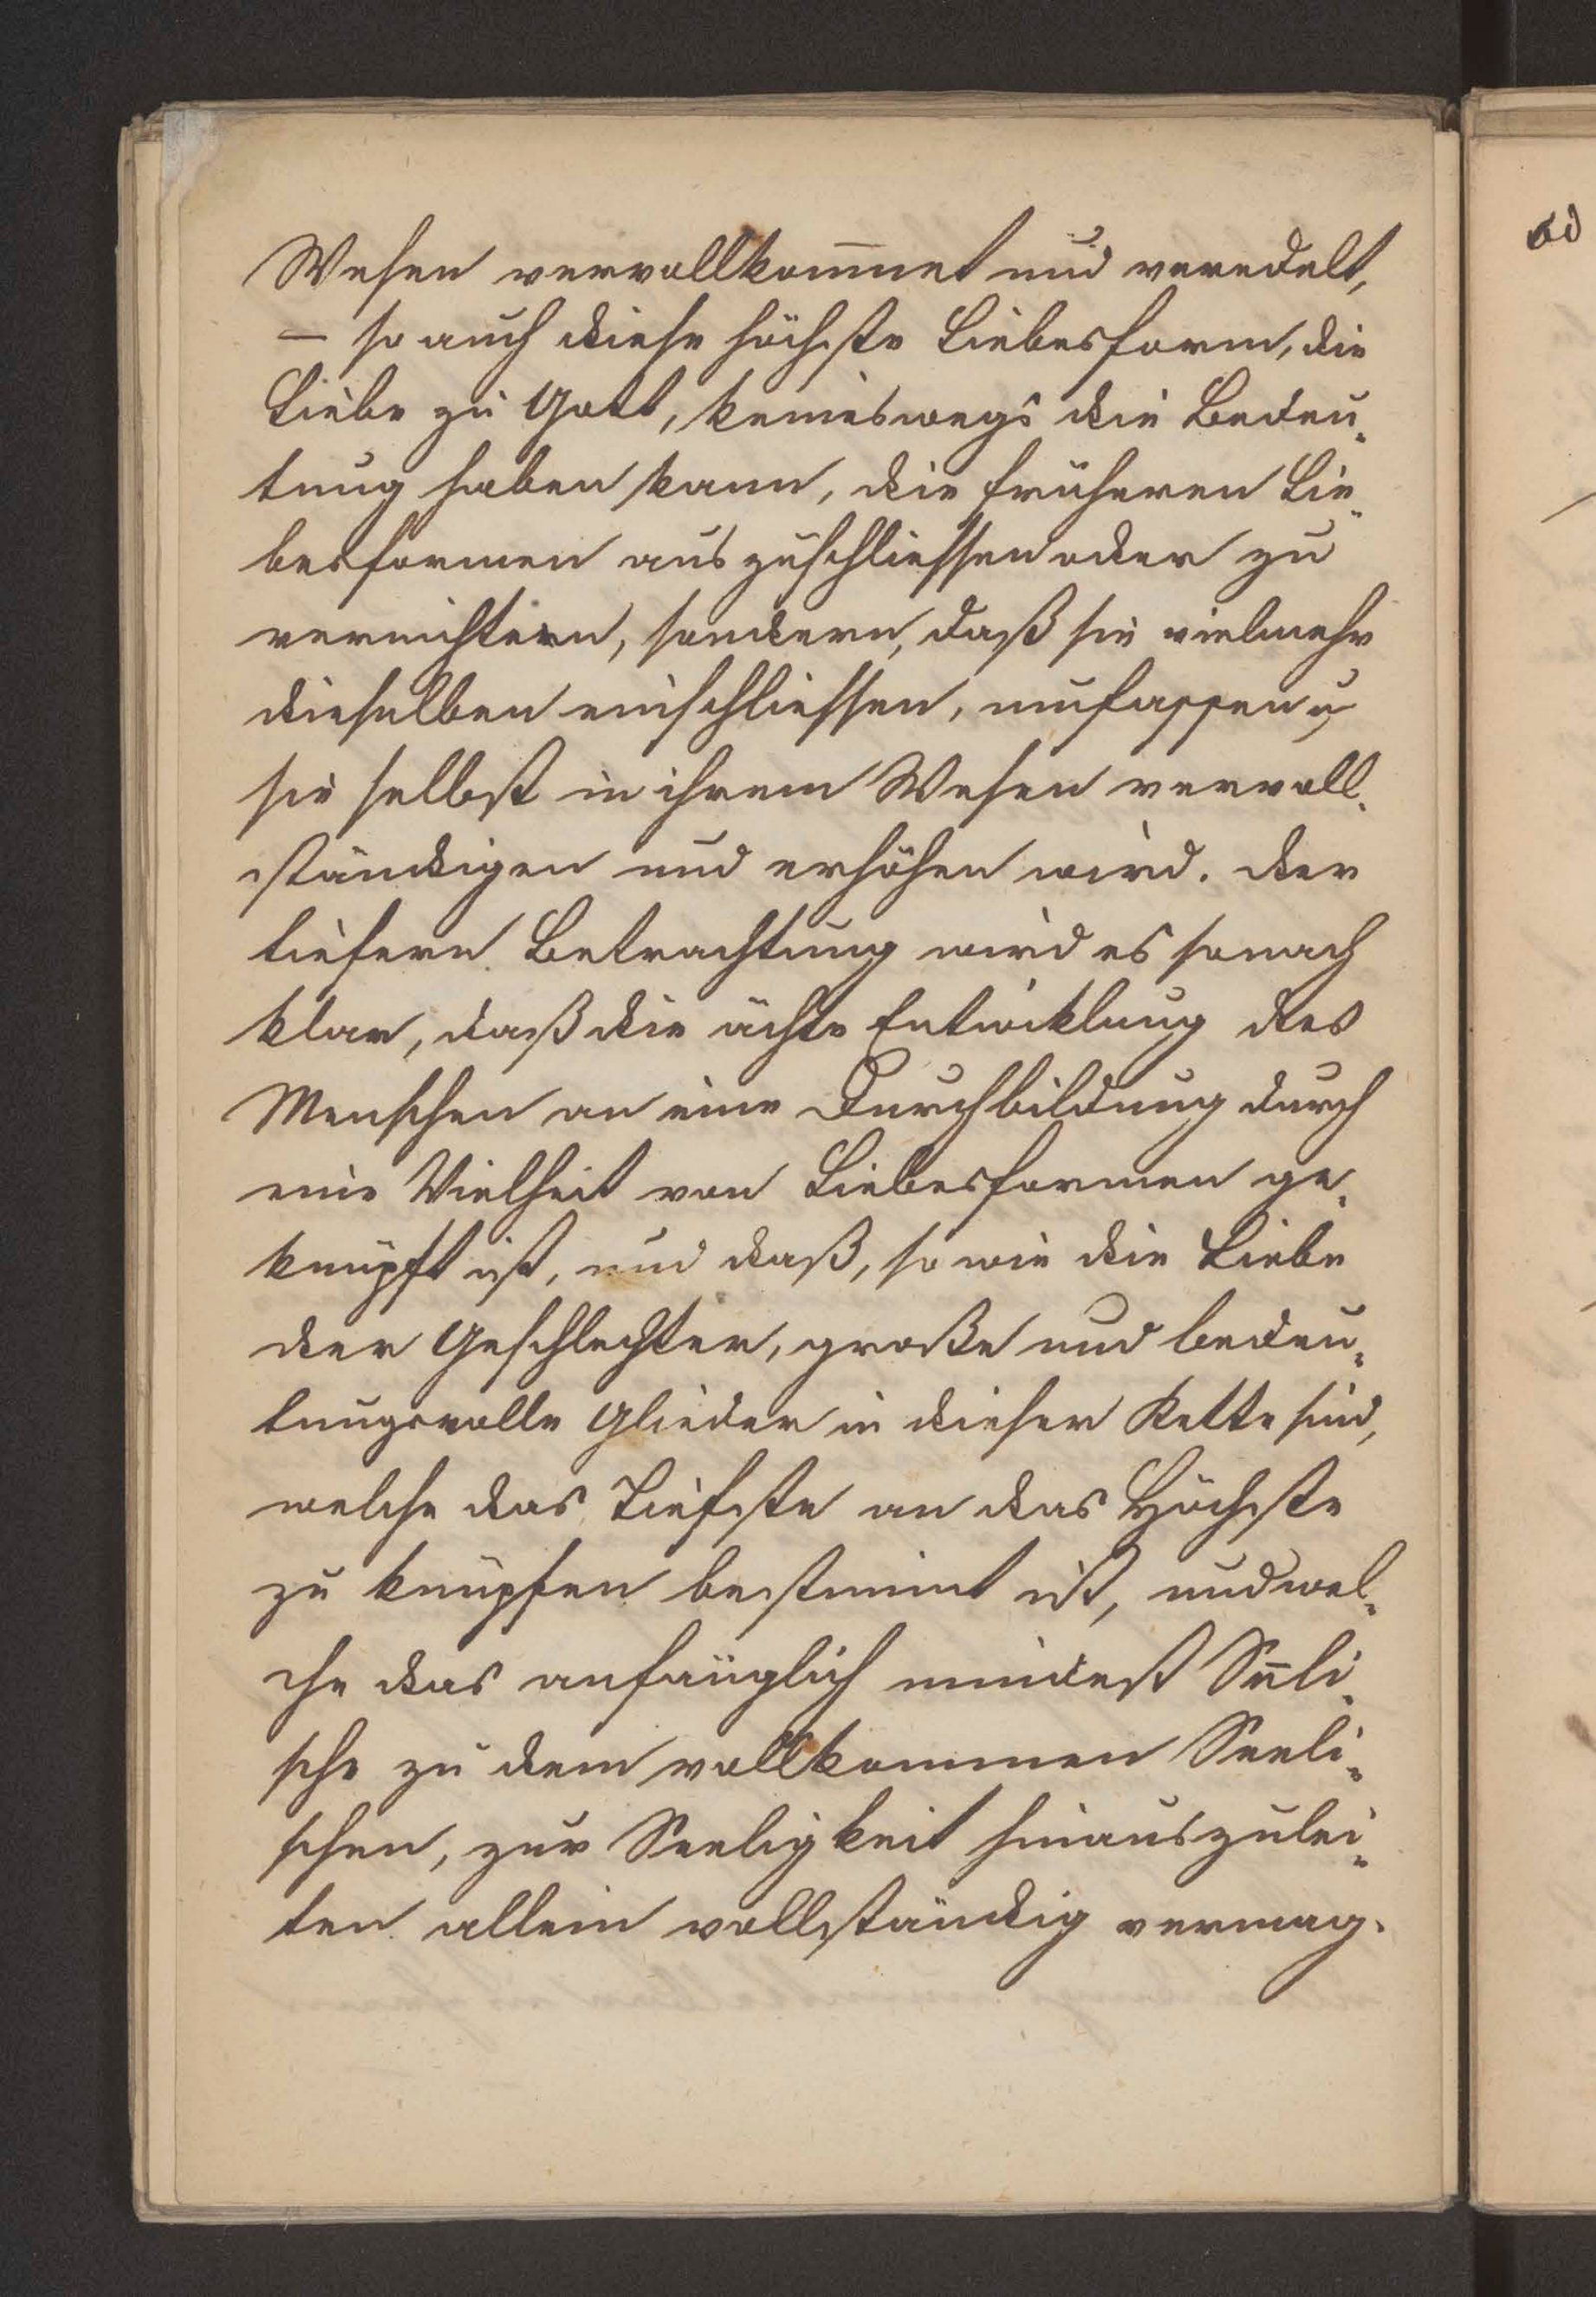 Wesen vervollkom̅net und veredelt,
— so auch diese höchste Liebesform, die
Liebe zu Gott, keineswegs die Bedeu-
tung haben kann, die früheren Lie-
besformen auszuschliessen oder zu
vernichten, sondern, daß sie vielmehr
dieselben einschliessen, umfassen u
sie selbst in ihrem Wesen vervoll-
ständigen und erhöhen wird. Der
tiefern Betrachtung wird es sonach
klar, daß die ächte Entwicklung des
Menschen an eine Durchbildung durch
eine Vielheit von Liebesformen ge-
knüpft ist, und daß, so wie die Liebe
der Geschlechter, große und bedeu-
tungsvolle Glieder in dieser Kette sind,
welche das Tiefste an das Höchste
zu knüpfen bestimmt ist, und wel-
che das anfänglich mindest Seeli-
sche zu dem vollkommen Seeli-
schen, zur Seeligkeit hinauszulei-
ten allein vollständig vermag.